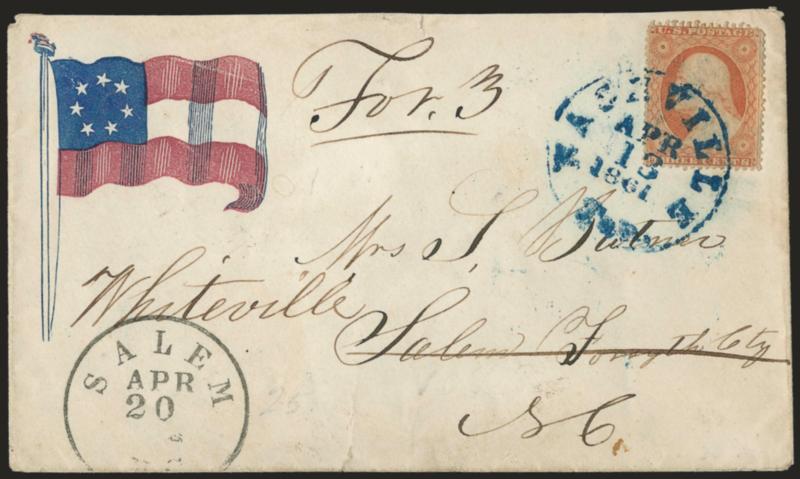 For. 3
U.S. POSTAGE
NASHVILLE
APR
13
1861
Mrs S. Butner
Whiteville
Salem Forsyth Cty
N C
SALEM
APR
20
25